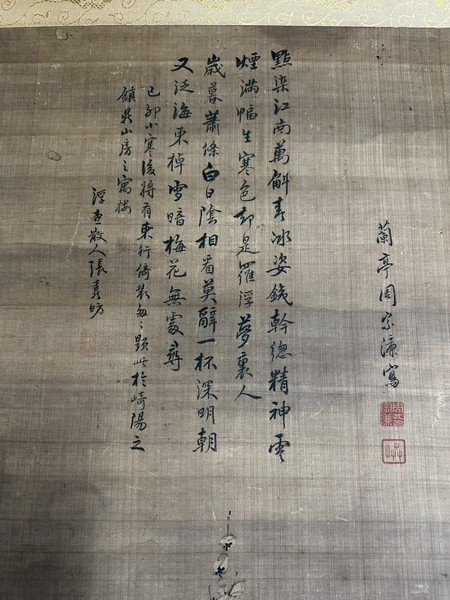 蘭亭周宗濂寫
點染江南萬斛春冰姿銕幹總精神雲
煙滿幅生寒色却是羅浮夢裏人
歲暮蕭條白日陰相看莫辭一杯深明朝
又泛海東棹雪暗梅花無處尋
己卯小寒後將有東行倚裝匆々題此於崎陽之
鎮山房之寓樓
浮查散人張秀昉